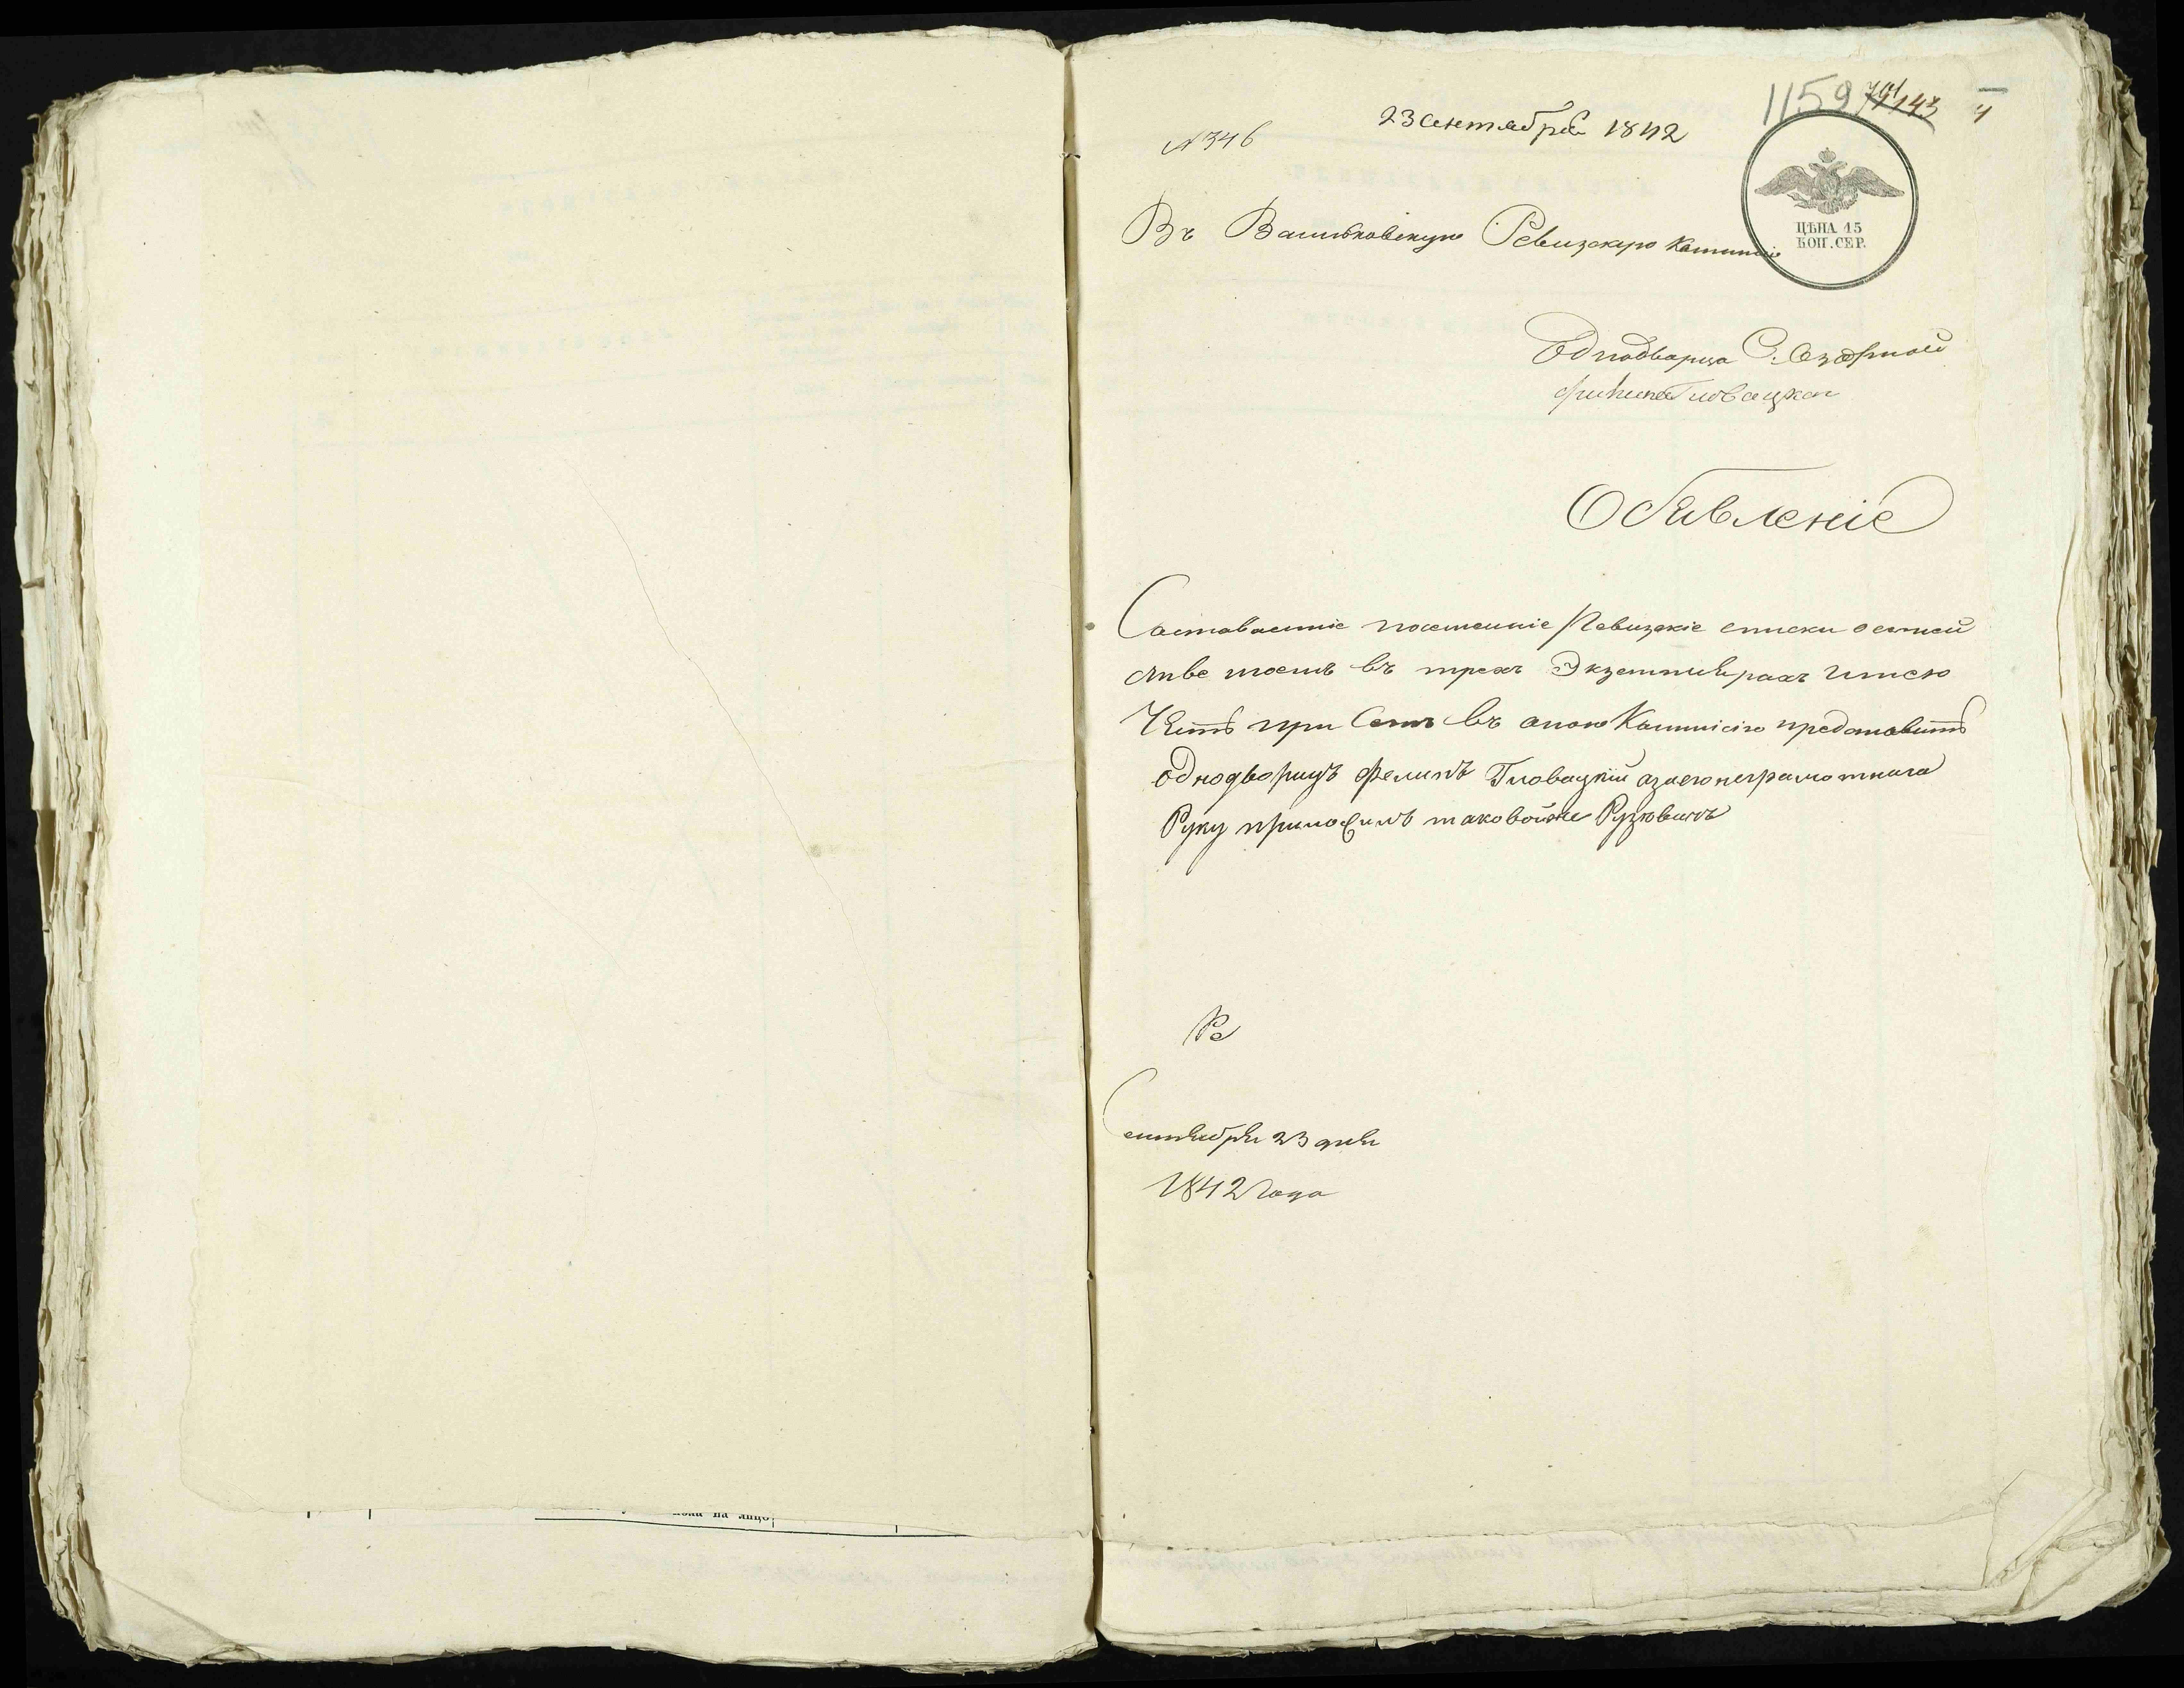 1159 701 143 4
23 Сентября 1842
№ 346
ЦѢНА 15
КОП. СЕР.
Въ Васильковскую Ревизскую Комисію
Однодворца С. Озерной
Феликса Гловацкаго
Обявленіе
Составленніе посемейніе Ревизскіе списки о семей
стве моемъ въ трехъ Экземплярахъ имею
Честь при Семъ въ оную Коммисію представить
однодворецъ Феликсъ Гловацкій а за его неграмотнаго
Руку приложилъ таковойже
Ре
Сентября 23 дня
1842 Года
на лицо